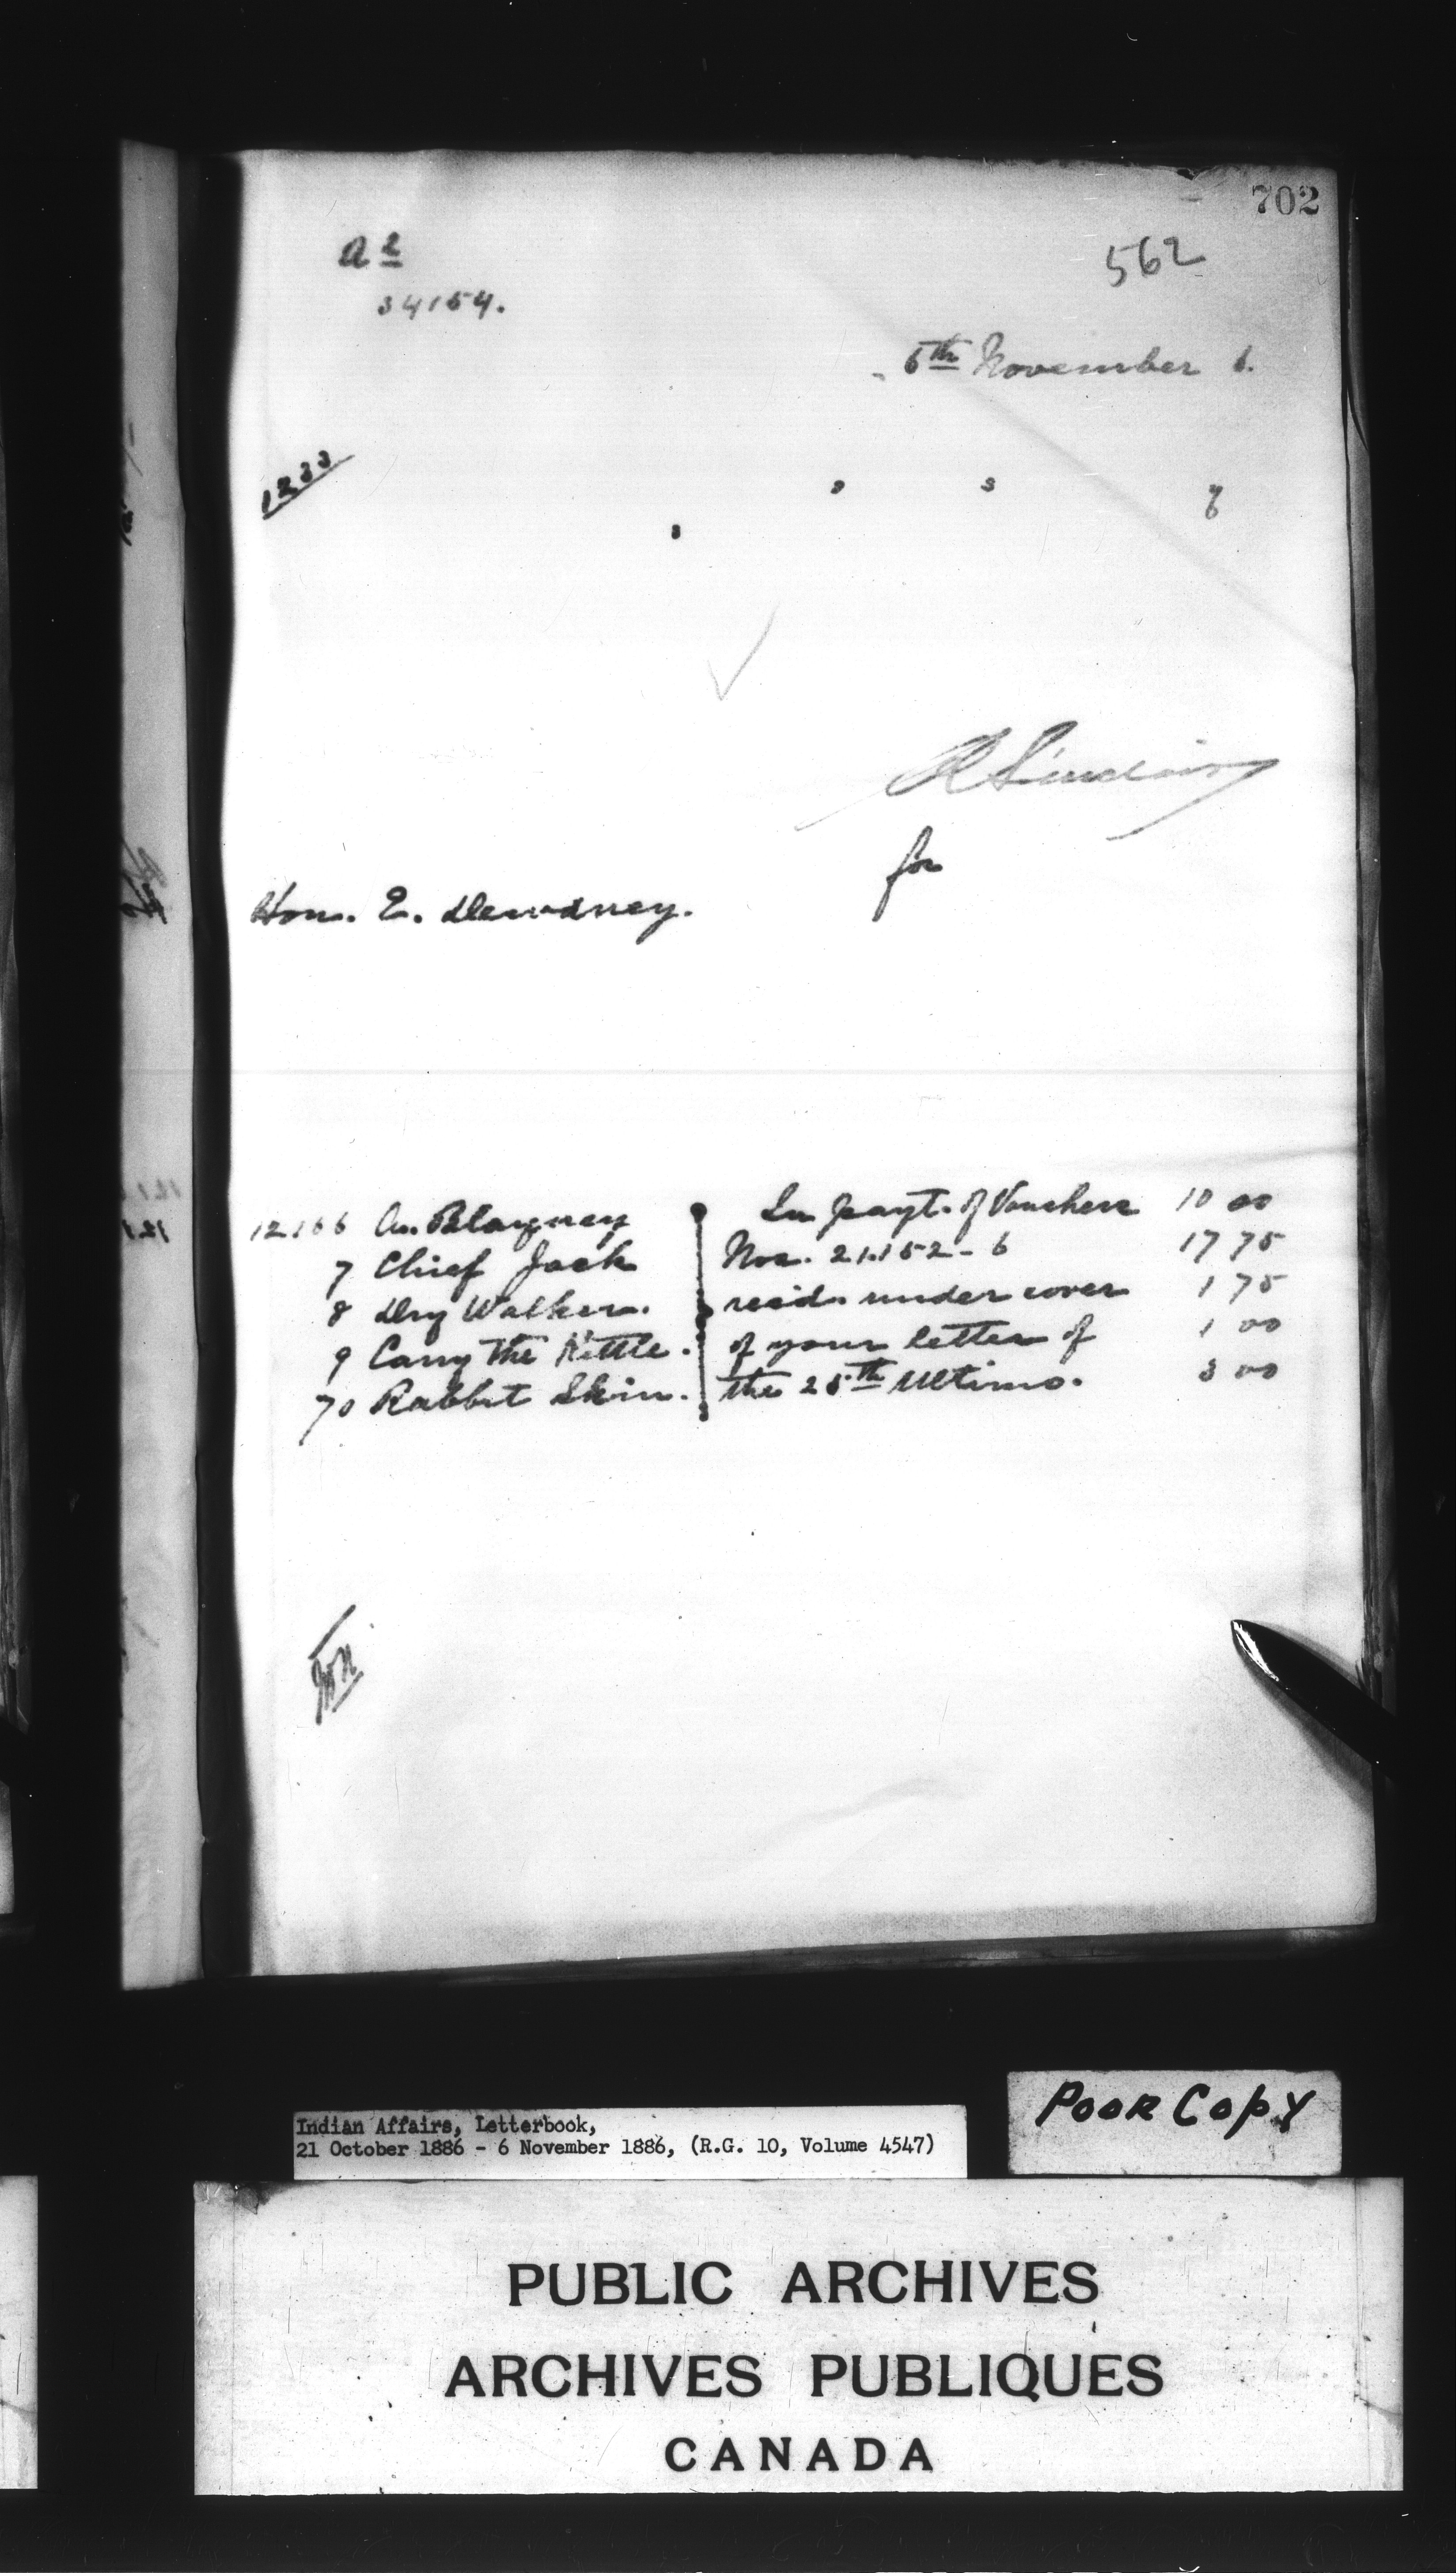 702
562
a 2
34154.
6th November 6.
1233
s s y
s
R Sinclair
for
Hon. E. Dewdney.
12166 Blayney In payt. of Vouchers 10 00
7 Chief Jack Nos. 21152-6 17 75
8 Dry Walker. recd. under cover 1 75
9 Carry The Kettle. of your letter of 1 00
70 Rabbit Skin. the 25th Ultimo. 3 00
Indian Affairs, Letterbook,
21 October 1886 - 6 November 1886, (R.G. 10, Volume 4547)
POOR COPY
PUBLIC ARCHIVES
ARCHIVES PUBLIQUES
CANADA